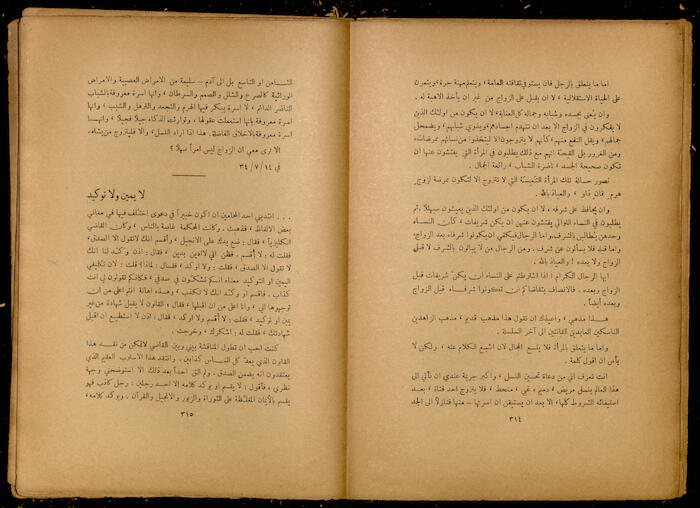 اما ما يتعلق بالرجل فان يستوفي ثقافته العامة، ويتعلم مهنة حرة، ويتمرن
على الحياة الاستقلالية، لا ان يقبل على الزواج من غير ان يأخذ الاهبة له.
وان يعنى بجسده وشبابه وجماله كل العناية، لا ان يكون من اولئك الذين
لا يفكرون في الزواج الا بعد ان تتهدم اجسامهم، ويذوي شبابهم، ويضمحل
جمالهم، ويقل النفع منهم، كأنهم لا يتزوجون الا ليتخذوا من نسائهم ممرضات.
ومن الغرور بل القحة انهم مع ذلك يطلبون في المرأة التي يفتشون عنها ان
تكون صحيحة الجسد، ناضرة الشباب، رائعة الجمال.
تصور حالة تلك المرأة التعيسة التي لا تتزوج الا لتكون ممرضة لزوج
هرم فان ذاو، والعياذ بالله.
وان يحافظ على شرفه، لا ان يكون من اولئك الذين يعيشون سبهللا، ثم
يطلبون في النساء اللواتي يفتشون عنهن ان يكن شريفات، كأن النساء
وحدهن يطالبن بالشرف، واما الرجال فيكفي ان يكونوا شرفاء بعد الزواج،
واما قبله فلا يسألون عن شرف، ومن الرجال من لا يبالون بالشرف لا قبل
الزواج ولا بعده؛ والعياذ بالله.
ايها الرجال الكرام؛ اذا اشترطتم على النساء ان يكن شريفات قبل
الزواج وبعده. فالانصاف يتقاضاكم ان تكونوا شرفاء قبل الزواج
وبعده ايضاً.
هذا مذهبي، واعيذك ان تقول هذا مذهب قديم، مذهب الزاهدين
الناسكين العابدين القانتين الى آخر السلسلة.
واما ما يتعلق بالمرأة فلا يتسع المجال لان اشبع الكلام عنه، ولكن لا
بأس ان اقول كلمة.
انت تعرف اني من دعاة تحسين النسل، واكبر جريمة عندي ان نأتي الى
هذا العالم بنسل مريض، دميم، غبي، منحط، فلا يتزوج احد فتاة، بعد
استيفائه الشروط كلها، الا بعد ان يستيقن ان اسرتها – منها فنازلاً الى الجد
٣١٤
الثامن او التاسع بل الى آدم – سليمة من الامراض العصبية والامراض
الوراثية كالصرع والشلل والصمم والسرطان، وانها اسرة معروفة بالشباب
الناضر الدائم، لا اسرة يبكر فيها الهرم والتجعد والترهل والشيب، وانها
اسرة معروفة بانها استعملت عقولها، وتوارثت الذكاء جيلاً فجيلاً، وانهـا
اسرة معروفة بالاخلاق الفاضلة. هذا اذا اراد النسل، والا فليتزوج من يشاء.
الا ترى معي ان الزواج ليس امراً سهلاً؟
في ١٤/٧/٣٤
لا يمين ولا توكيد
... انتدبني احد المحامين ان اكون خبيراً في دعوى اختلف فيها في معاني
بعض الالفاظ، فذهبت، وكانت المحكمة غاصة بالناس، وكان القاضي
انكليزياً، فقال: ضع يدك على الانجيل، وأقسم انك لا تقول الا الصدق،
فقلت له: لا أقسم، فظن اني لا ادين بدين، فقال: إذن وكّد لنا انك
لا تقول الا الصدق، فقلت: ولا اوكد، فقال: لماذا؟ قلت: لان تكليفي
اليمين او التوكيد معناه انكم تشكّون في صدقي، فكأنكم تقولون لي انت
كذاب، فاقسم او وكّد انك لا تكذب، وهذه اهانة انتم اعلى من ان
توجهوها الي، وانا اعلى من ان اقبلها، فقال: القانون لا يقبل شهادة من غير
يمين او توكيد، فقلت: لا أقسم ولا اوكد، فقال: اذن لا استطيع ان اقبل
شهادتك، فقلت له: اشكرك، وخرجت.
كنت احب ان تطول المناقشة بيني وبين القاضي لاتمكن من نقد هذا
القانون الذي يعد كل الناس كذابين. وانتقد هذا الاسلوب العقيم الذي
يعتقدون انه يضمن الصدق. ولم الق احداً بعد ذلك الا استوضحني وجهة
نظري، فأقول: لا يقسم او يوكد كلامه الا احد رجلين: رجل كاذب فهو
يقسم بالأيمان المغلظة على التوراة والزبور والانجيل والقرآن. ويوكد كلامه،
٣١٥